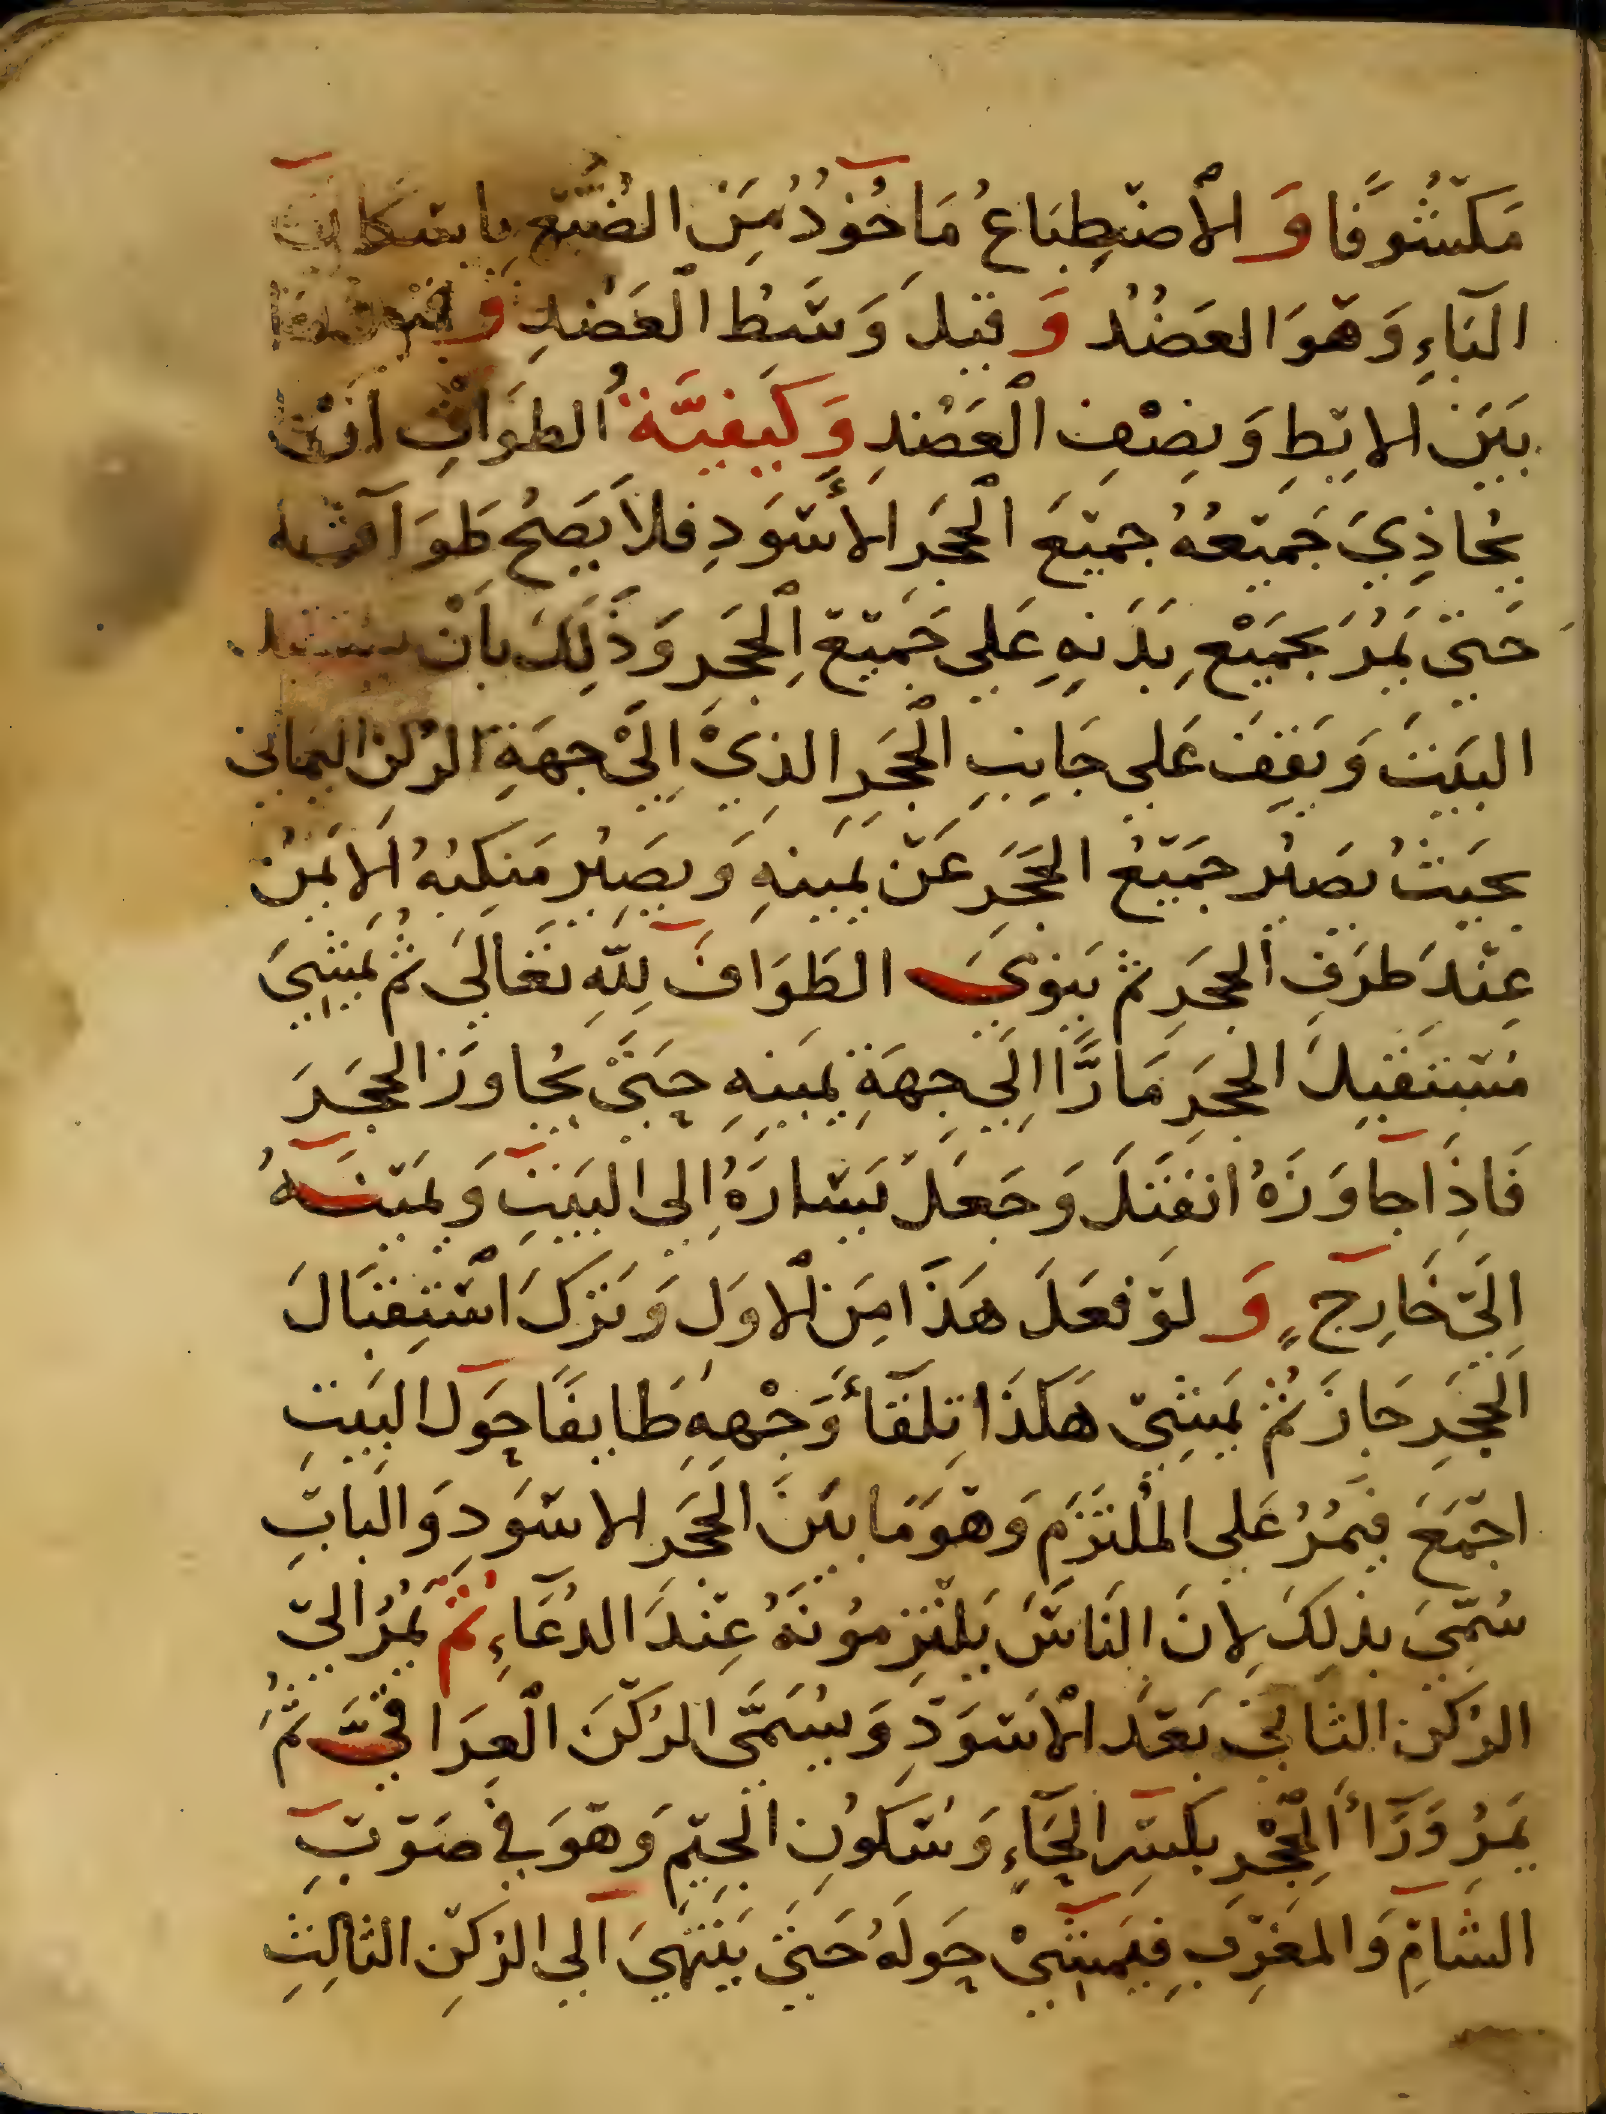 مَكْشُوفًا وَالْاضْطِبَاعُ مَاخُوذُ مِنَ الضَّبْعِ باسْكان
البَاءِ وَهْوَ العَضُدُ وَقيْلَ وَسْطُ الْعَضُدِ وَ
بَيْنَ الابِطِ وَنِصْفِ الْعَضُدِ وَكَيْفِيَّةُ الطوَافِ انْ
يُحَاذِيَ جَمِيْعُهُ جمِيْعَ الْحَجَرِ الأسْوَدِ فلَا يَصِحُ طَوَافُه
حَتيّ يَمُرَ بجَمِيْعِ بَدَنِهِ عَلي جَمِيْعِ الْحَجَرِ وَذَلِكَ باَنْ يستقبل
البَيْتَ وَيَقِفَ عَلي جَانِبِ الْحَجَرِ الذِيْ اِليْ جهَةِ الرُكن اليَماني
بحَيْثُ يَصِيْرُ جَمِيْعُ الحَجَرِ عَنْ يَمِيْنِهِ وَيصِيْرُ مَنكِبُهُ الايمَنُ
عِنْدَ طرَفِ الحجَرِ ثم يَنوِيَ الطَوَافَ لِلّهِ تعَاليَ ثُم يَمْشِيَ
مُسْتَقْبِلَ الحجَرِ مَارًّا اِلَي جِهَةِ يَمِيْنِهِ حَتيْ يُجاوَزَ الحجَرَ
فَاذِاَ جاوَزَهُ انفَتَلَ وَجَعَلَ يَسَارَهُ اِلى البَيْتِ وَيَمِيْنَهُ
اِلَيّ خَارِجٍ وَلوْ فعَلَ هَذَا مِنَ الْاوَلِ وَترَكَ اسْتِقْبَالَ
الحَجَرِ جَازَ ثُمّ يَمْشِيّ هَكَذَا تِلقَآءَ وَجْهِهِ طَايفًا حَولَ البَيْتِ
اجْمَعَ فيَمُرُ عَلي المُلْتَزَمِ وَهْوَ مَا بَيْنَ الحَجَرِ الاسْوَدِ وَالبابِ
سُمّيَ بذلِكَ لِانَ النَاسَ يَلْتَزِمُونَهُ عِنْدَ الدُعَاءِ ثُمّ يَمُرُ اليّ
الرُكن الثاني بَعْدَ الْاسْوَدِ وَيُسَمَّى الرُكْنَ الْعِرَاقيَّ ثُمّ
يَمُرُ وَرَآءَ الْحِجْرِ بكَسْرِ الحَآءِ وَسُكُونِ الجِيْمِ وَهْوَ فيْ صَوْبِ
الشَامِ وَالمَغرِبِ فيَمْشِيْ حَولَهُ حَتيَ يَنْتَهِيَ الي الرُكنِ الثالِثِ